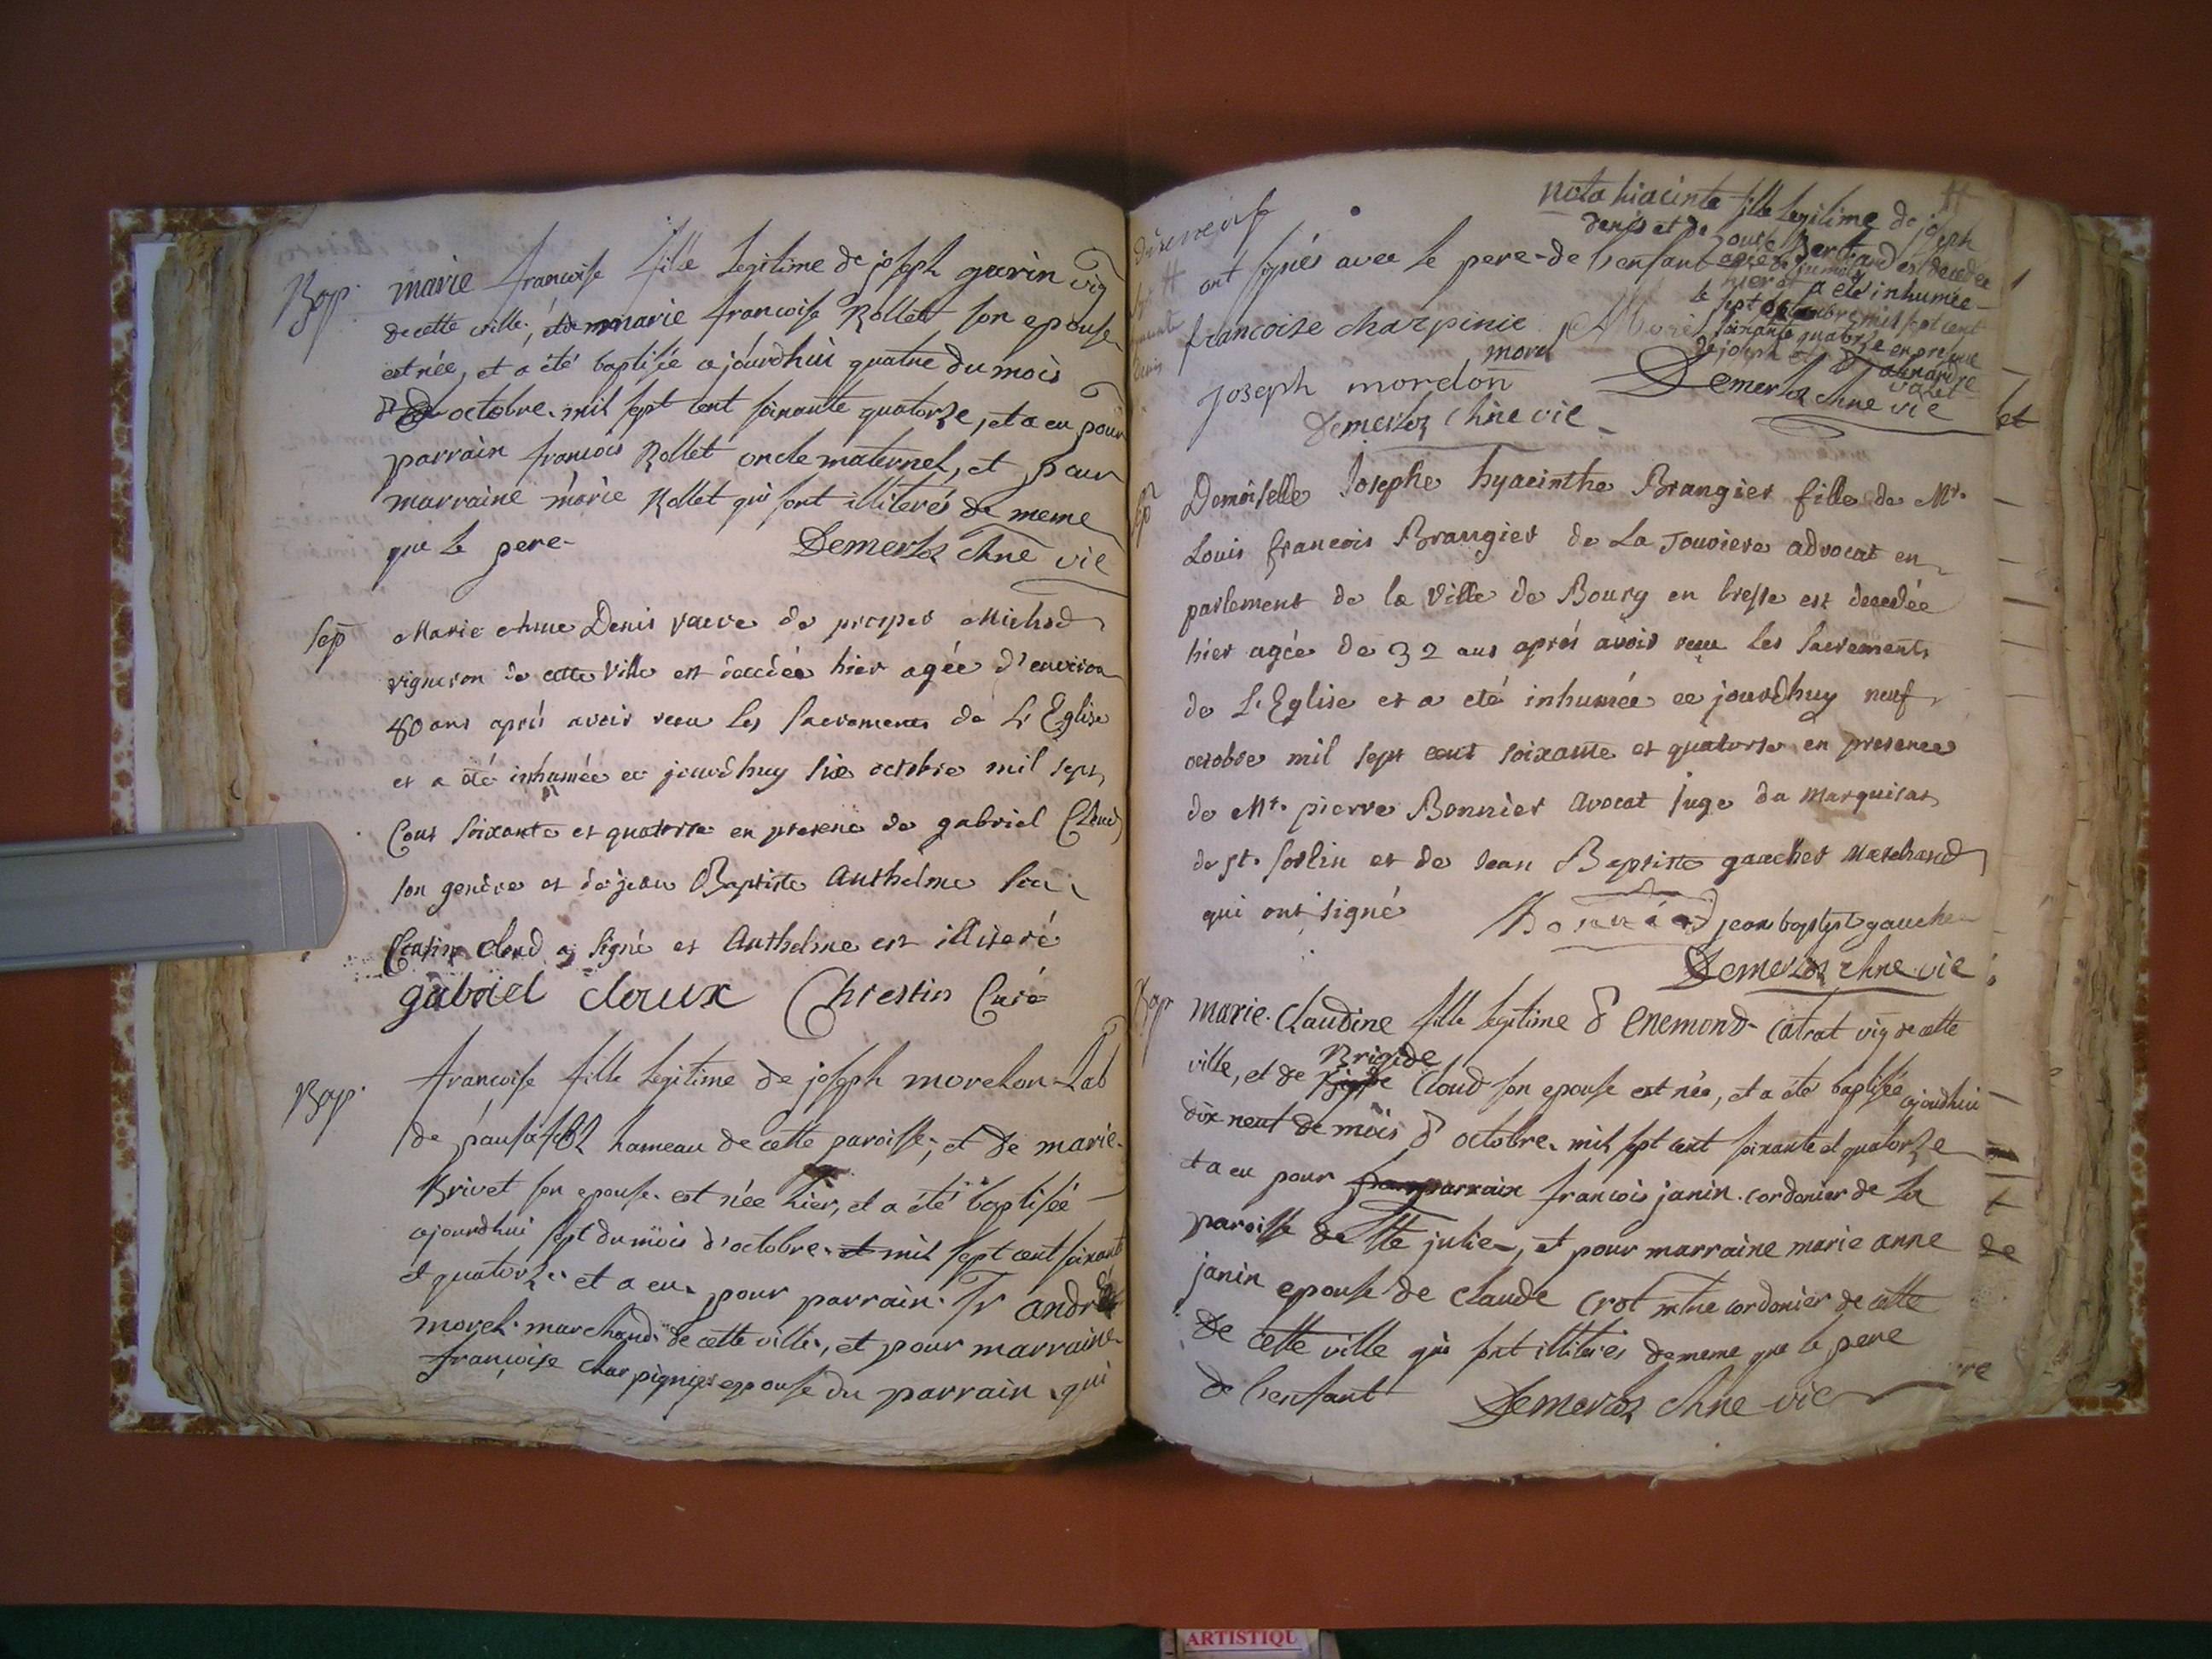 Bap.
marie francoise fille legitime de joseph guerin vig
de cette ville, et de marie francoise Rollet son epouse
est née, et a été baptisée ajourdhui quatre du mois
d'octobre mil sept cent soixante quatorze, et a eu pour
parrain francois Rollet oncle maternel, et pour
marraine marie Rollet qui sont illiterés de meme
que le pere
Demerloz chne vic
Sep
Marie Denis vaeve de prosper Michod
vigneron de cette Ville est decedée hier agée d'environ
80 ans aprés avoir receu les sacrements de L'Eglise
et a été inhumée ce jourdhuy six octobre mil sept
Cent soixante et quatorze en presence de gabriel Cloud
son gendre et de jean Baptiste Anthelme son
Cousin cloud a signé et Anthelme est illiteré
gabriel cloux Chrestin Curé
Bap.
francoise fille legitime de joseph morelon Lab
de hameau de cette paroisse, et de marie
Brivet son epouse est née hier, et a été baptisée
ajourdhui sept du mois d'octobre et mil sept cent soixante
et quatorze et a eu pour parrain Sr andré
morel marchand de cette ville, et pour marraine
françoise Charpignier epouse du parrain qui
#
nota hiacinte fille legitime de joseph
denis et de Bertrand est decedée
ont signés avec le pere de l'enfant
hier et a eté inhumée
le sept octobre mil sept cent
soixante quatorze en presence
de joseph et d'
francoise charpinie Morel
morel
joseph mordon
Demerloz chne vic
Demerloz chne vic
et
Sep
Demoiselle Josephe hyacinthe Brangier fille de Mr.
Louis francois Brangier de La Jouviere advocat en
parlement de la Ville de Bourg en bresse est decedée
hier agée de 32 ans aprés avoir receu les sacrements
de L'Eglise et a eté inhumée ce jourdhuy neuf
octobre mil sept cent soixante et quatorse en presence
de Mr. pierre Bonnier avocat juge du Marquisat
de st. sorlin et de Jean Baptiste gaucher Marchand
qui ont signé
jean baptist gauche
Demerloz chne vic
Bap
marie Claudine fille legitime d'enemond Catrat vig de cette
Brigide
ville, et de Cloud son epouse est née, et a eté baptisée ajourdhui
dix neuf de mois d'octobre mil sept cent soixante et quatorze
et a eu pour parrain francois janin cordonier de la
paroisse de Ste julie, et pour marraine marie anne
de
janin epouse de Claude Crot mtre cordonier de cette
de cette ville qui sont illiterés de meme que le pere
re
de l'enfant Demerloz chne vic
ARTISTIQU